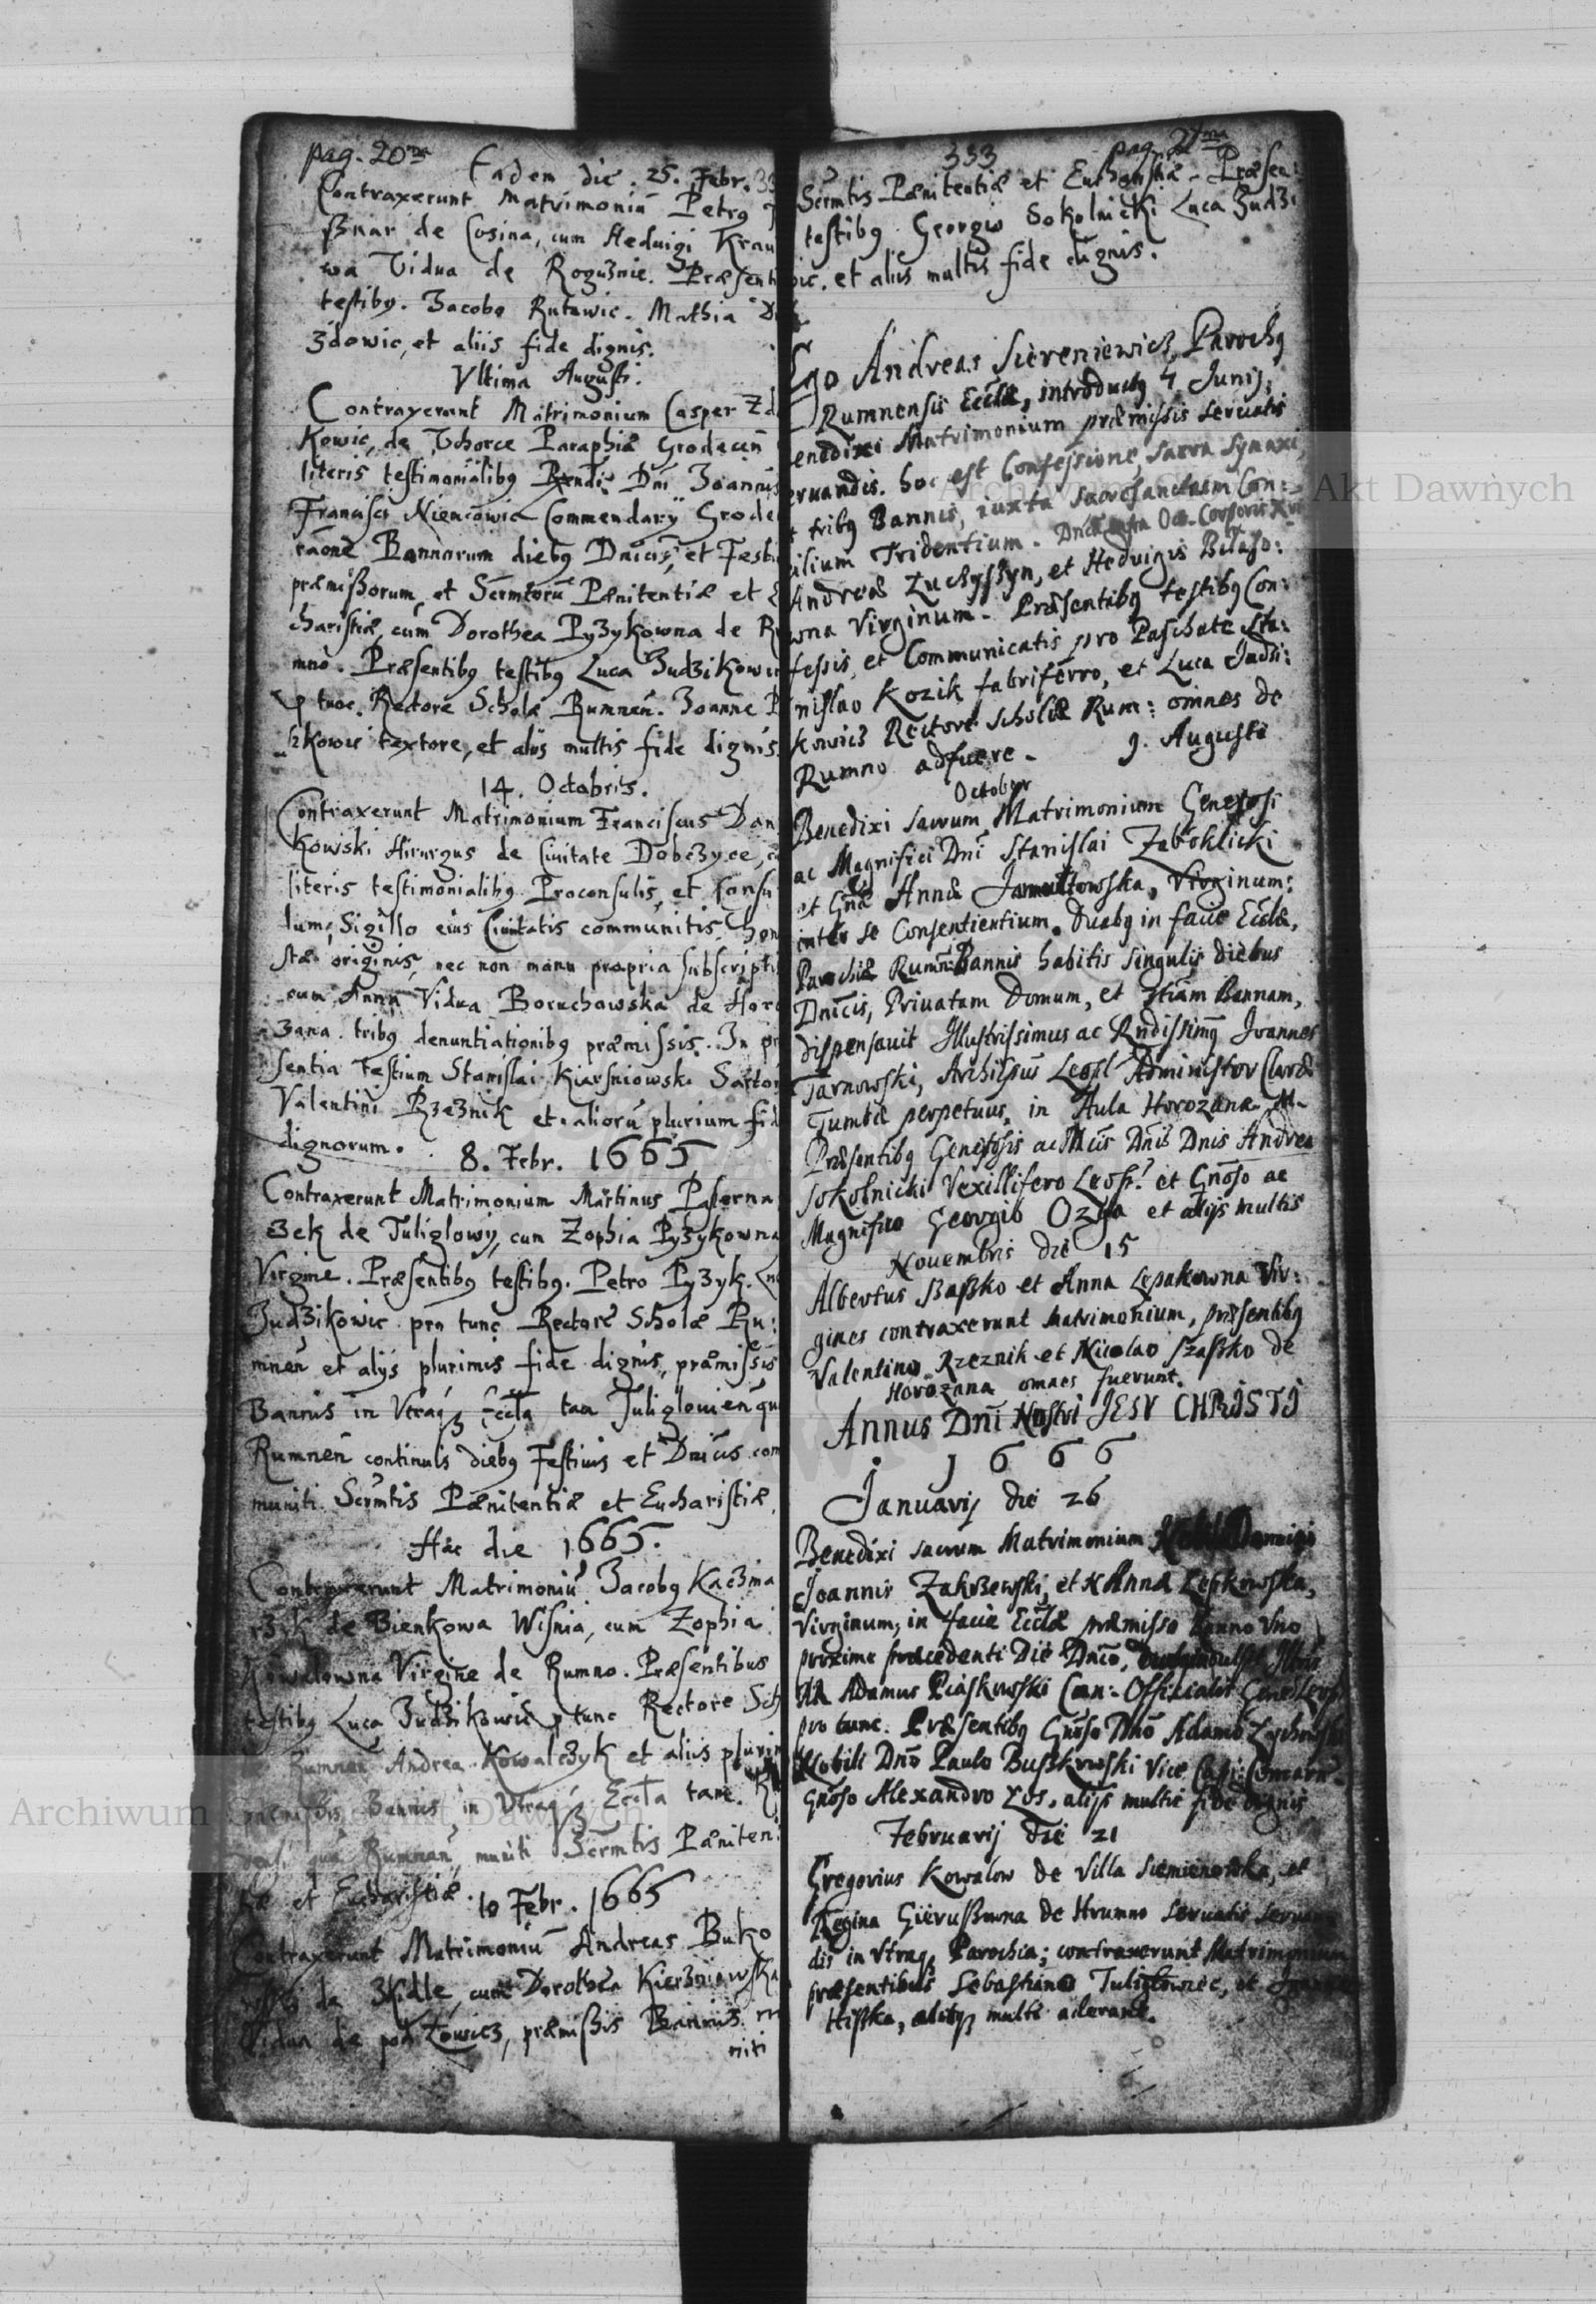 pag. 20ma
Eadem die. 25. Febr.
Contraxerunt Matrimoniũ Petrus
sznar de Cosina, cum Heduigi Krau
wa Vidua de Roguznie. Præsenti
testibus. Jacobo Rutawic. Mathia
zdowic, et aliis fide dignis.
Vltima Augusti.
Contraxerunt Matrimonium Casper Zd
Kowic, de Vhorce Paraphiæ Grodecen
literis testimonialibus Rendi Dni Joannis
Francisci Niencowic Commendarij Grode
raone Bannorum diebus Dnicis, et Festi
præmissorum, et Scrmtorũ Pænitentiæ et E
charistiæ, cum Dorothea Pyzykowna de Ru
mno. Præsentibus testibus Luca Judzikowic
p tunc. Rectore Scholæ Rumnen. Joanne
szkowic textore, et alijs multis fide dignis.
14. Octobris.
Contraxerunt Matrimonium Franciscus Dan
Kowski Hirurgus de Ciuitate Dobczyce, cũ
literis testimonialibus Proconsulis, et Consu
lum, Sigillo eius Ciuitatis communitis, hone
stæ originis, nec non manu propria subscriptis
cum Anna Vidua Boruchowska de Horo
zana. tribus denuntiationibus præmissis. In præ
sentia testium Stanislai Kiarsniowski Sartor
Valentini Rzeznik et aliorũ plurium fide
dignorum.
8. Febr. 1665
Contraxerunt Matrimonium Martinus Paserna
czek de Tuliglowy, cum Zophia Pyzykowna
Virgine. Præsentibus testibus. Petro Pyzyk. Lu
Judzikowic pro tunc Rectore Scholæ Ru:
mnen et alijs plurimis fide dignis, præmissis
Bannis in Vtraqz Eccla tan Tuliglouien qu
Rumnen continuis diebus Festiuis et Dnicis com
muniti Scrmtis Pænitentiæ et Eucharistiæ.
Hac die 1665.
Contraxerunt Matrimoniũ Jacobus Kaczma
rzyk de Bienkowa Wisnia, cum Zophia
Kowalowna Virgine de Rumno. Præsentibus
testibus Luca Judzikowic p tunc Rectore Sch
Rumnen Andrea Kowalczyk et aliis plurim
præmissis Bannis in Vtraqz Eccla tam.
quã Rumnen, muniti Scrmtis Pæniten:
tiæ et Eucharistiæ.
10 Febr. 1665
Contraxerunt Matrimoniũ Andreas Buko
wski de Zkidle, cum Dorothea Kierzniowska
Vidua de pod Zowicz, præmissis Bannis m
niti
333
pag. 21ma
Scrmtis Pænitentiæ et Eucharistiæ. Præsen:
testibus Georgio Sokolnicki Luca Judzi
wic. et aliis multis fide dignis.
Ego Andreas Siereniewicz, Parochus
Rumnensis Ecclæ, introductus 4 Junij,
benedixi Matrimonium præmissis seruatis
seruandis. hoc est Confessione, sacra synaxi
et tribus Bannis, iuxta sacrosanctum Con:
cilium Tridentium. Dnica infra Oct. Corporis Xri
Andreæ Zuchyszyn, et Heduigis Bilaso:
wna Virginum. Præsentibus testibus Con:
fessis, et Communicatis pro Paschate Sta:
nislao Kozik fabriferro, et Luca Judzi:
kowicz Rectore Scholæ Rum: omnes de
Rumno adfuere.
9. Augusti
October
Benedixi sacrum Matrimonium Generosi
ac Magnifici Dni Stanislai Zaboklicki
et Gnæ Annæ Jamiltowska, Virginum:
inter se Consentientium. Duabus in facie Ecclæ,
Parochiæ Rumn: Bannis habitis singulis diebus
Dnicis, Priuatam Domum, et 3tiam Bannam,
dispensauit Illustrissimus ac Rndissimus Joannes
Tarnowski, Archieps Leopl Administor Claræ
Tumbæ perpetuus, in Aula Horozana
Præsentibus Generosis ac Mcis Dnis Dnis Andrea
Sokolnicki Vexillifero Leop. et Gnoso ac
Magnifico Georgio Ozga et alijs multis
Nouembris die 15
Albertus Szaszko et Anna Lepakowna Vir:
gines contraxerunt Matrimonium, præsentibus
Valentino Rzeznik et Nicolao Szaszko de
Horozana omnes fuerunt.
Annus Dni Nostri JESV CHRISTI
1666
Januarij die 26
Benedixi sacrum Matrimonium
Joannis Zakrzewski, et Anna Lepkowska,
Virginum, in facie Ecclæ præmisso Banno vno
proxime præcedenti Die Dnico,
Adamus Piaskowski Can: Officialis Gener Leop
pro tunc. Præsentibus Gnoso Dno Adamo
Nobili Dno Paulo Buszkowski Vice Capi: Comarn
Gnoso Alexandro Los, alijs multis fide dignis
Februarij die 21
Gregorius Kowalow de Villa Siemienowka, et
Regina Gieruszowna de Hrumno seruatis seruan
dis in vtraqz Parochia; contraxerunt Matrimonium
præsentibus Sebastiano Tuliglowiec, et
Hiszka, alijqz multi aderant.
Archiwum Główne Akt Dawnych
Archiwum Główne Akt Dawnych